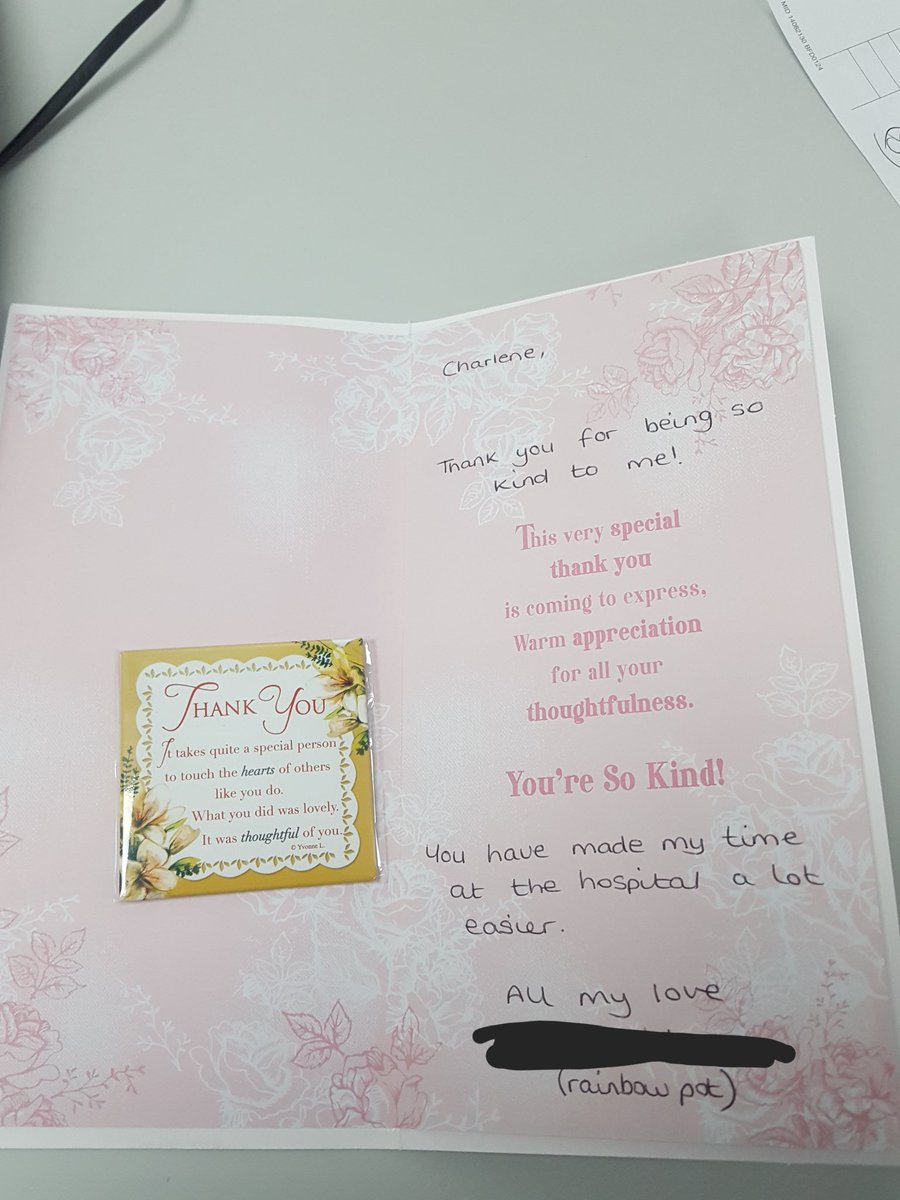 MID 14082130 BFD0124
Charlene,
Thank you for being so
kind to me!
This very special
thank you
is coming to express,
Warm appreciation
for all your
thoughtfulness.
You're So Kind!
You have made my time
at the hospital a lot
easier.
All my love
(rainbow pot)
THANK YOU
It takes quite a special person
to touch the hearts of others
like you do.
What you did was lovely.
It was thoughtful of you.
© Yvonne L.